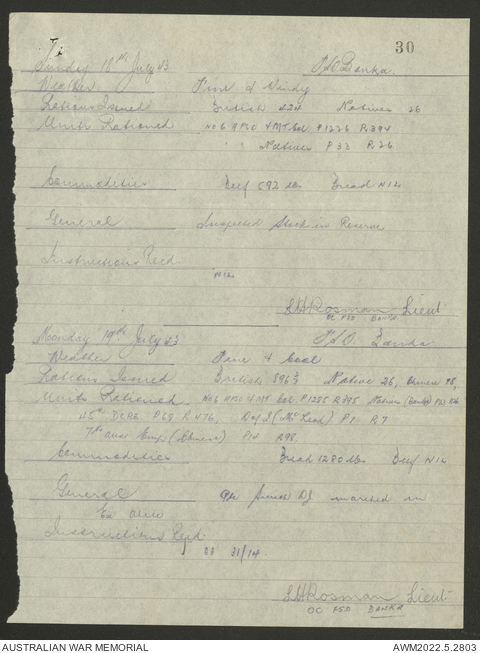 30
Sunday 18th July 43 F/O. Banka.
Weather Fine & Windy
Rations Issued British 424 Natives 26
Units Rationed No 6 MT Col P1226 R394
" " Natives P 33 R 26
Commodities Beef 592 lbs Bread Nil
General Inspected Stock in Reserve
Instructions Recd
Nil
SHRosman Lieut
OC FSD Banka
Monday 19th July 43 F/O. Banka
Weather Fine & Cool
Rations Issued British 896 Native 26, 98,
Units Rationed No 6 & MT Col. P1285 R395 Natives (Banka) P33 R26
45th P69 R476, P1 R7
7th P14 R98
Commodities Bread 1280 lbs Beef Nil
General marched in
Ex
Instructions Recd
31/14
SHRosman Lieut
OC FSD BANKA
AUSTRALIAN WAR MEMORIAL AWM2022.5.2803